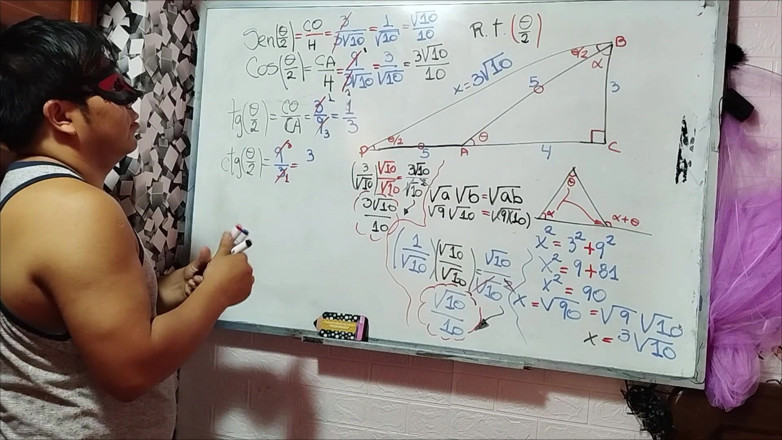 Sen(θ/2) = CO/H = 3/3√10 = 1/√10 = √10/10
Cos(θ/2) = CA/H = 9/3√10 = 3/√10 = 3√10/10
tg(θ/2) = CO/CA = 3/9 = 1/3
ctg(θ/2) = 9/3 = 3
R.T. (θ/2)
x = 3√10
θ/2
B
α
5
3
P
θ/2
5
A
θ
4
C
(3/√10)(√10/√10) = 3√10/√10²
3√10/10
√a √b = √ab
√9 √10 = √9(10)
(1/√10)(√10/√10) = √10/√10²
√10/10
θ
α
α+θ
x² = 3² + 9²
x² = 9 + 81
x² = 90
x = √90 = √9 √10
x = 3√10